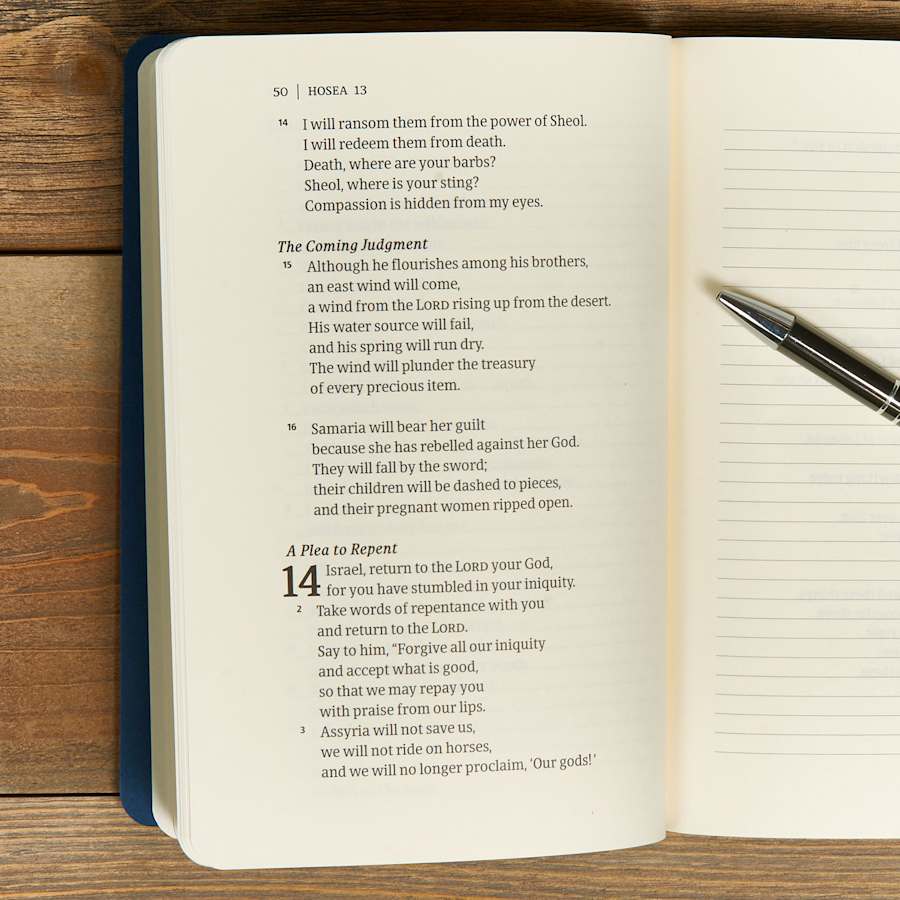 50 | HOSEA 13
14 I will ransom them from the power of Sheol.
I will redeem them from death.
Death, where are your barbs?
Sheol, where is your sting?
Compassion is hidden from my eyes.
The Coming Judgment
15 Although he flourishes among his brothers,
an east wind will come,
a wind from the LORD rising up from the desert.
His water source will fail,
and his spring will run dry.
The wind will plunder the treasury
of every precious item.
16 Samaria will bear her guilt
because she has rebelled against her God.
They will fall by the sword;
their children will be dashed to pieces,
and their pregnant women ripped open.
A Plea to Repent
14 Israel, return to the LORD your God,
for you have stumbled in your iniquity.
2 Take words of repentance with you
and return to the LORD.
Say to him, “Forgive all our iniquity
and accept what is good,
so that we may repay you
with praise from our lips.
3 Assyria will not save us,
we will not ride on horses,
and we will no longer proclaim, ‘Our gods!’